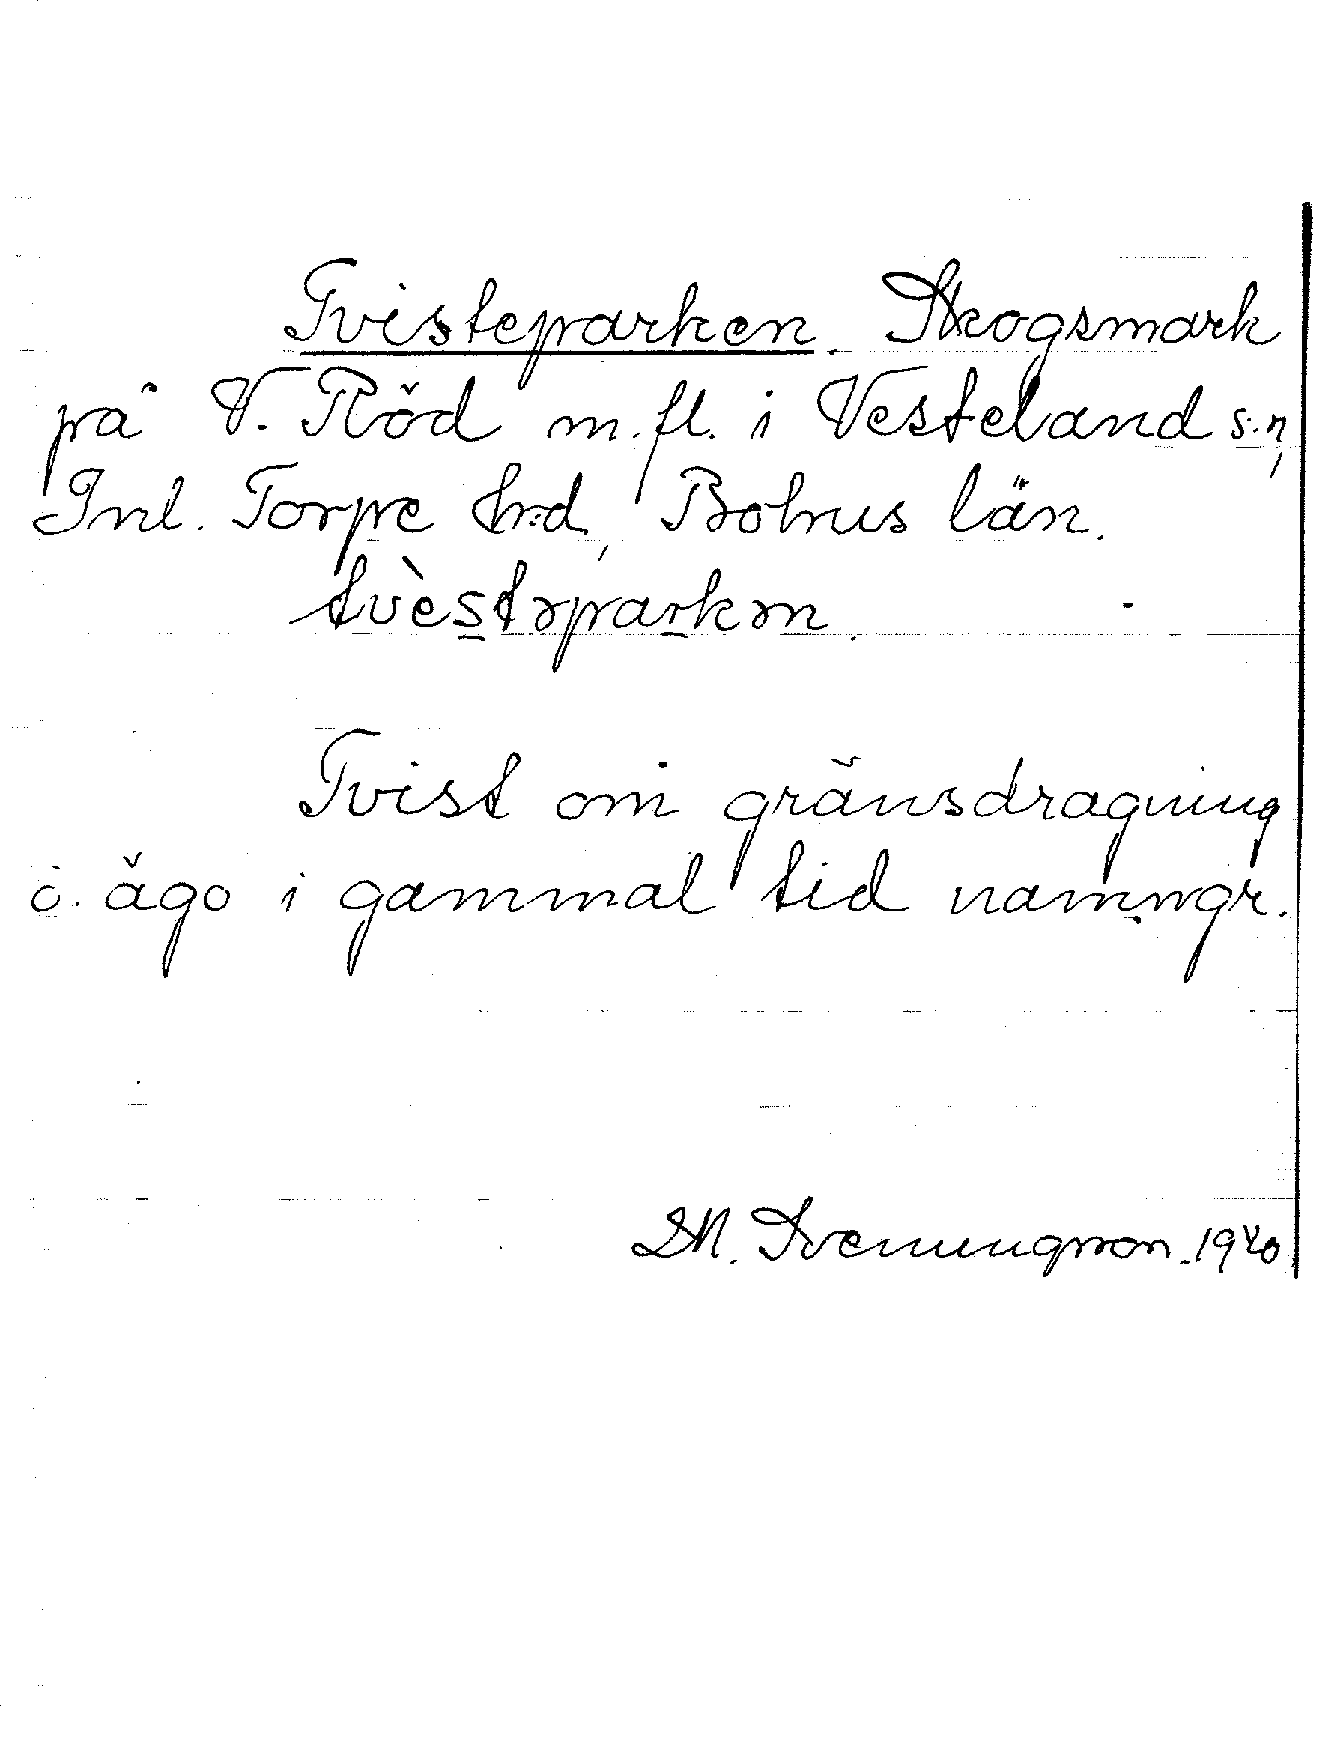 Tvisteparken. Skogsmark
på V. Röd m.fl. i Vesterland s:n,
Inl. Torpe hrd, Bohus län.
tvèstəparkən.
Tvist om gränsdragning
o. ägo i gammal tid namngr.
M. Svenungsson. 1940